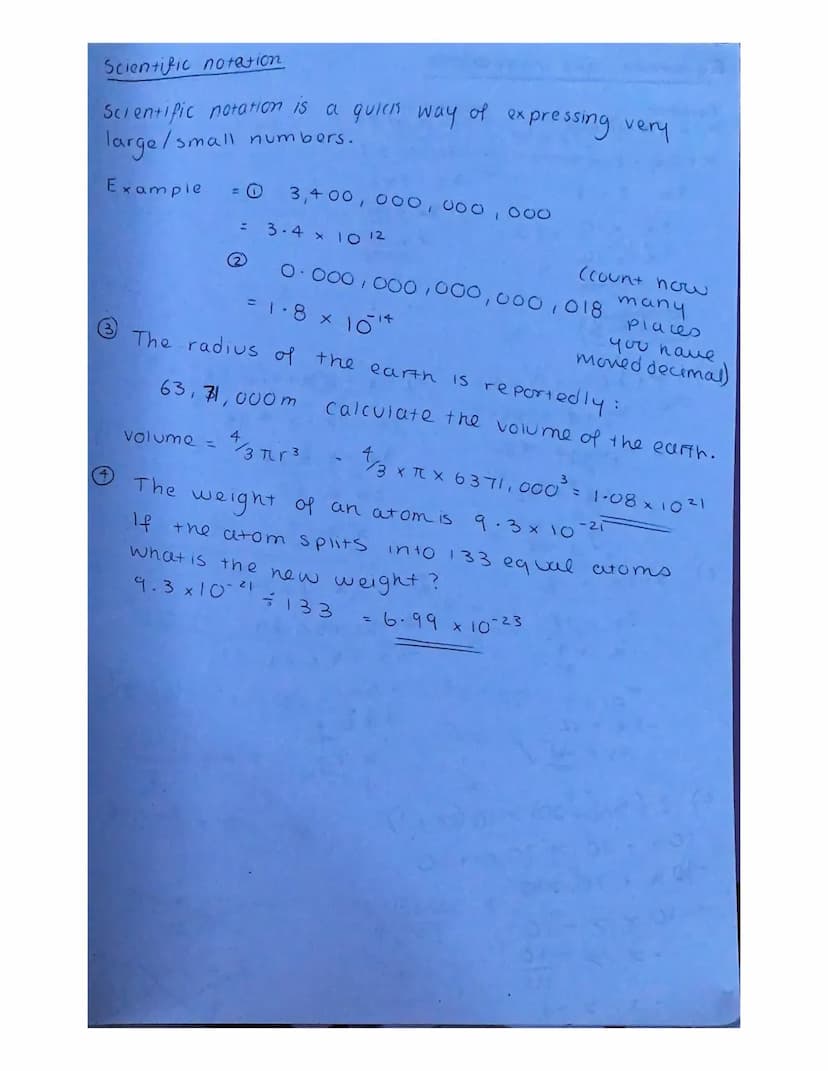 Scientific notation
Scientific notation is a quick way of expressing very
large/small numbers.
Example = ① 3,400,000,000,000
= 3.4 × 10¹²
② 0.000,000,000,000,018
= 1.8 × 10⁻¹⁴
(count how
many
places
you have
moved decimal)
③ The radius of the earth is reportedly:
63,71,000m calculate the volume of the earth.
volume = 4/3 πr³ = 4/3 × π × 6371,000³ = 1.08 × 10²¹
④ The weight of an atom is 9.3 × 10⁻²¹
If the atom splits into 133 equal atoms
what is the new weight?
9.3 × 10⁻²¹ ÷ 133 = 6.99 × 10⁻²³